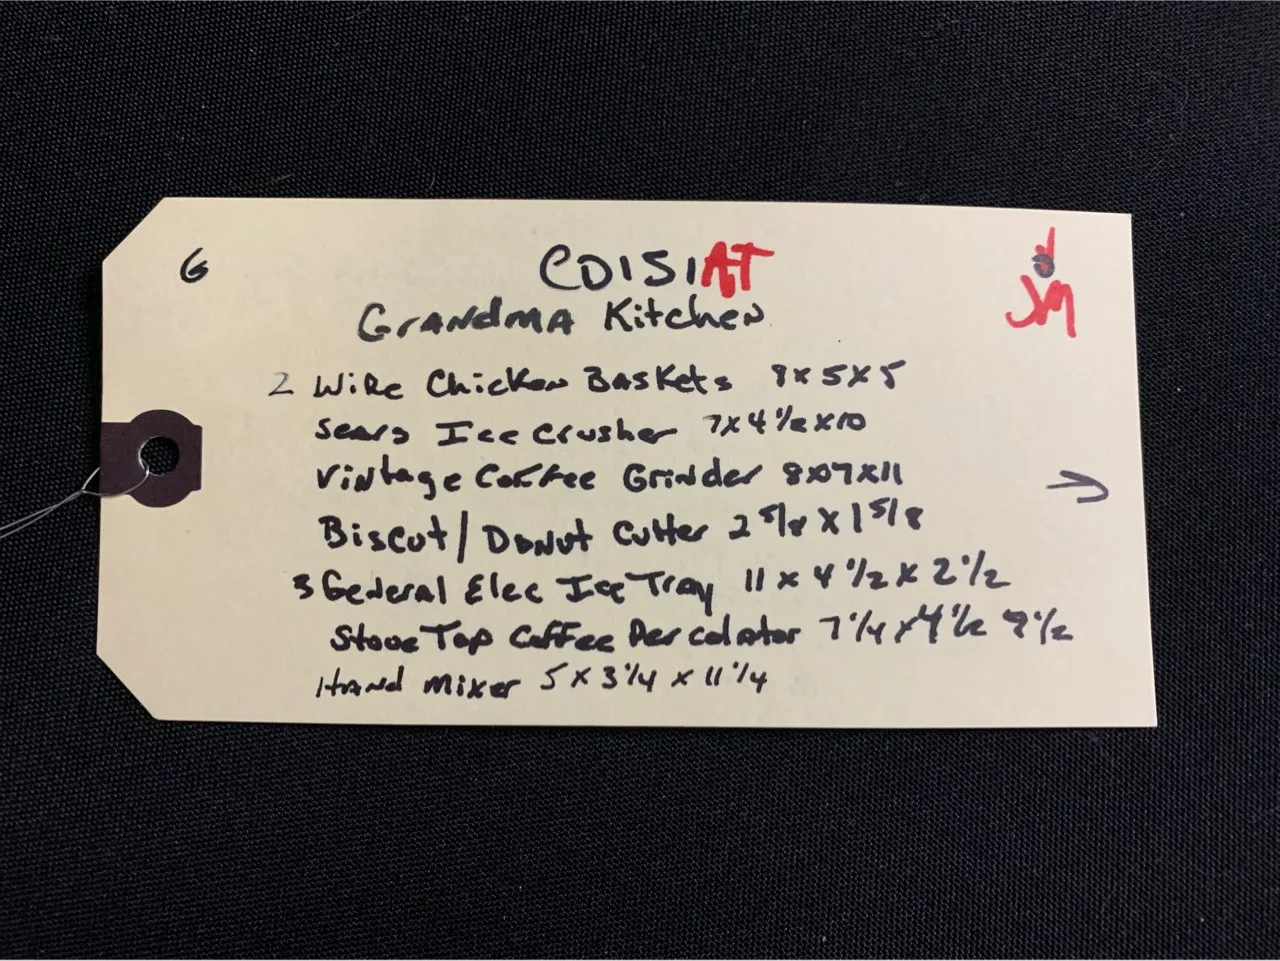 G
CD151AT
JM
Grandma Kitchen
2 Wire Chicken Baskets 8x5x5
Sears Ice Crusher 7x4 1/2 x10
Vintage Coffee Grinder 8x7x11
Biscut/Donut Cutter 2 5/8 x 1 5/8
3 General Elec Ice Tray 11 x 4 1/2 x 2 1/2
Stove Top Coffee Percolator 7 1/4 x 4 1/2 9 1/2
Hand Mixer 5 x 3 1/4 x 11 1/4